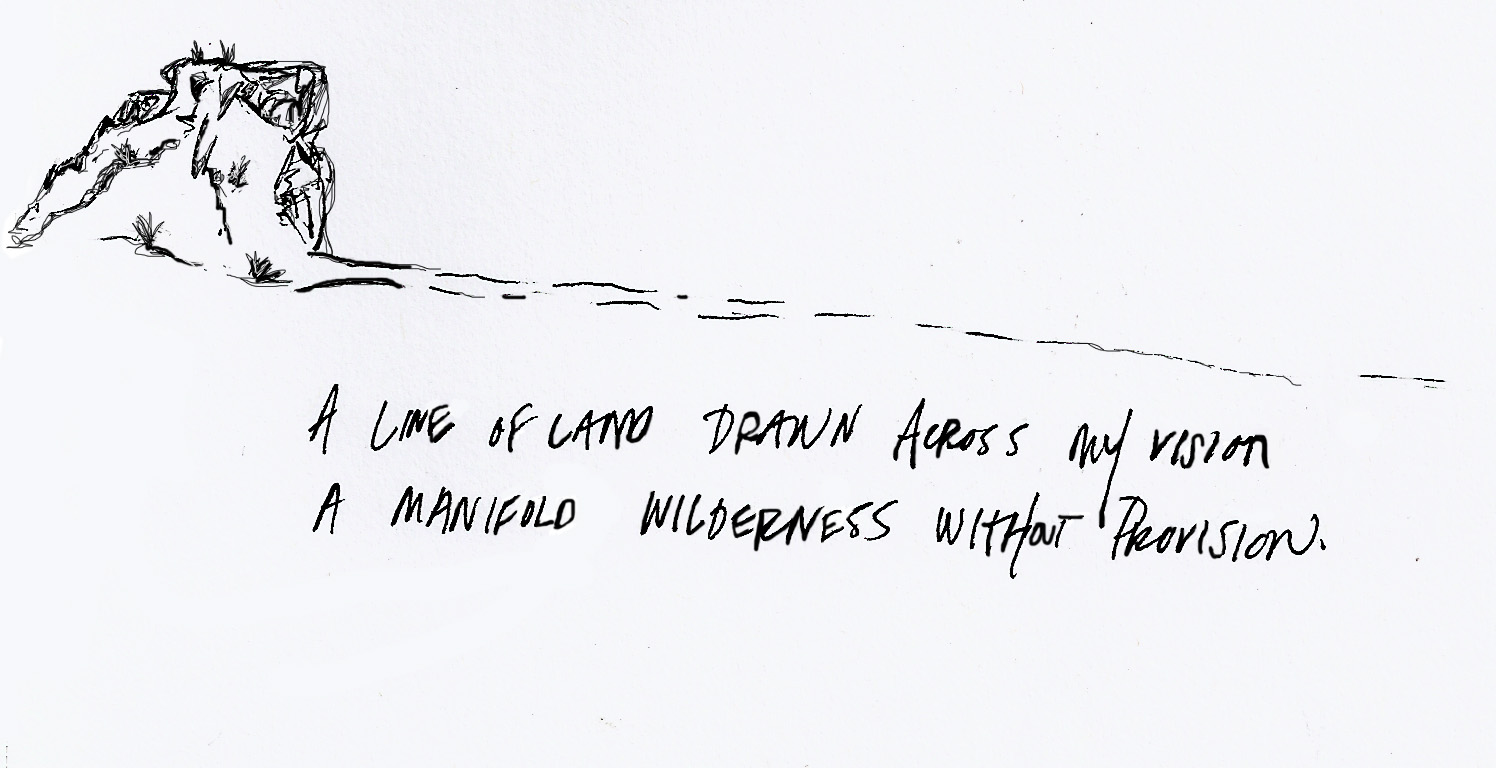 A LINE OF LAND DRAWN ACROSS MY VISION
A MANIFOLD WILDERNESS WITHOUT PROVISION.